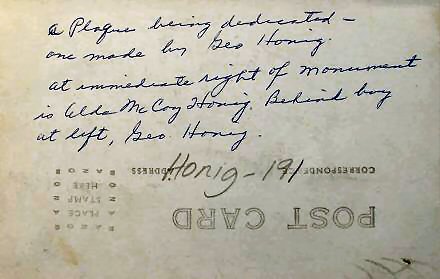 a Plaque being dedicated –
one made by Geo Honig.
at immediate right of monument
is Alda McCoy Honig. Behind boy
at left, Geo. Honig.
Honig – 191
CORRESPONDENCE
ADDRESS
POST CARD
PLACE A
STAMP
HERE